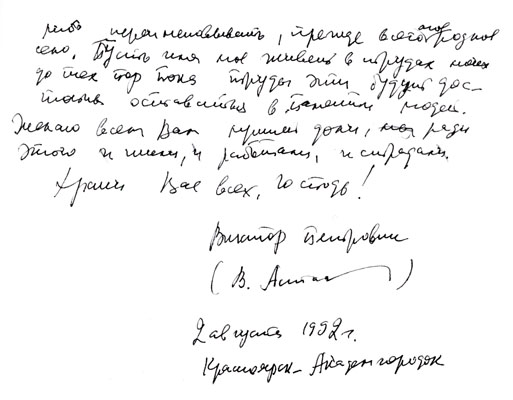 либо переименовывать, прежде всего моё родное
село. Пусть имя моё живёт в трудах моих
до тех пор пока труды эти будут дос-
тойны оставаться в памяти людей.
Желаю всем Вам лучшей доли, ради
этого и жили, и работали, и страдали.
Храни Вас всех, Господь!
Виктор Петрович
(В. Астаф)
2 августа 1992 г.
Красноярск-Академгородок